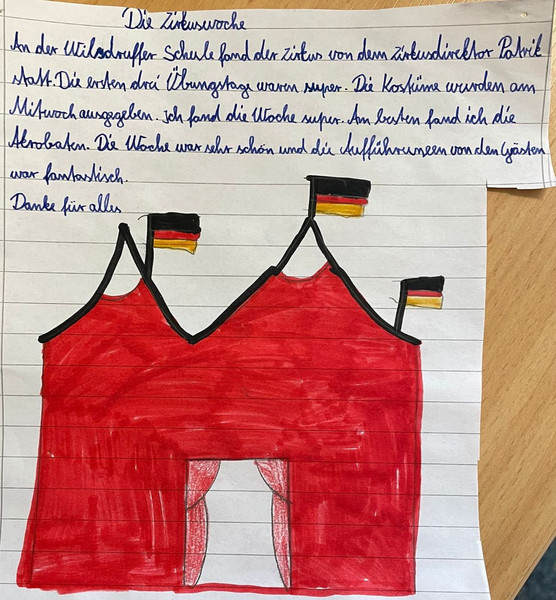 Die Zirkuswoche
An der Wilsdruffer Schule fand der Zirkus von dem Zirkusdirektor Patrik
statt. Die ersten drei Übungstage waren super. Die Kostüme wurden am
Mitwoch ausgegeben. Ich fand die Woche super. Am besten fand ich die
Akrobaten. Die Woche war sehr schön und die Aufführungen von den Gästen
war fantastisch.
Danke für alles